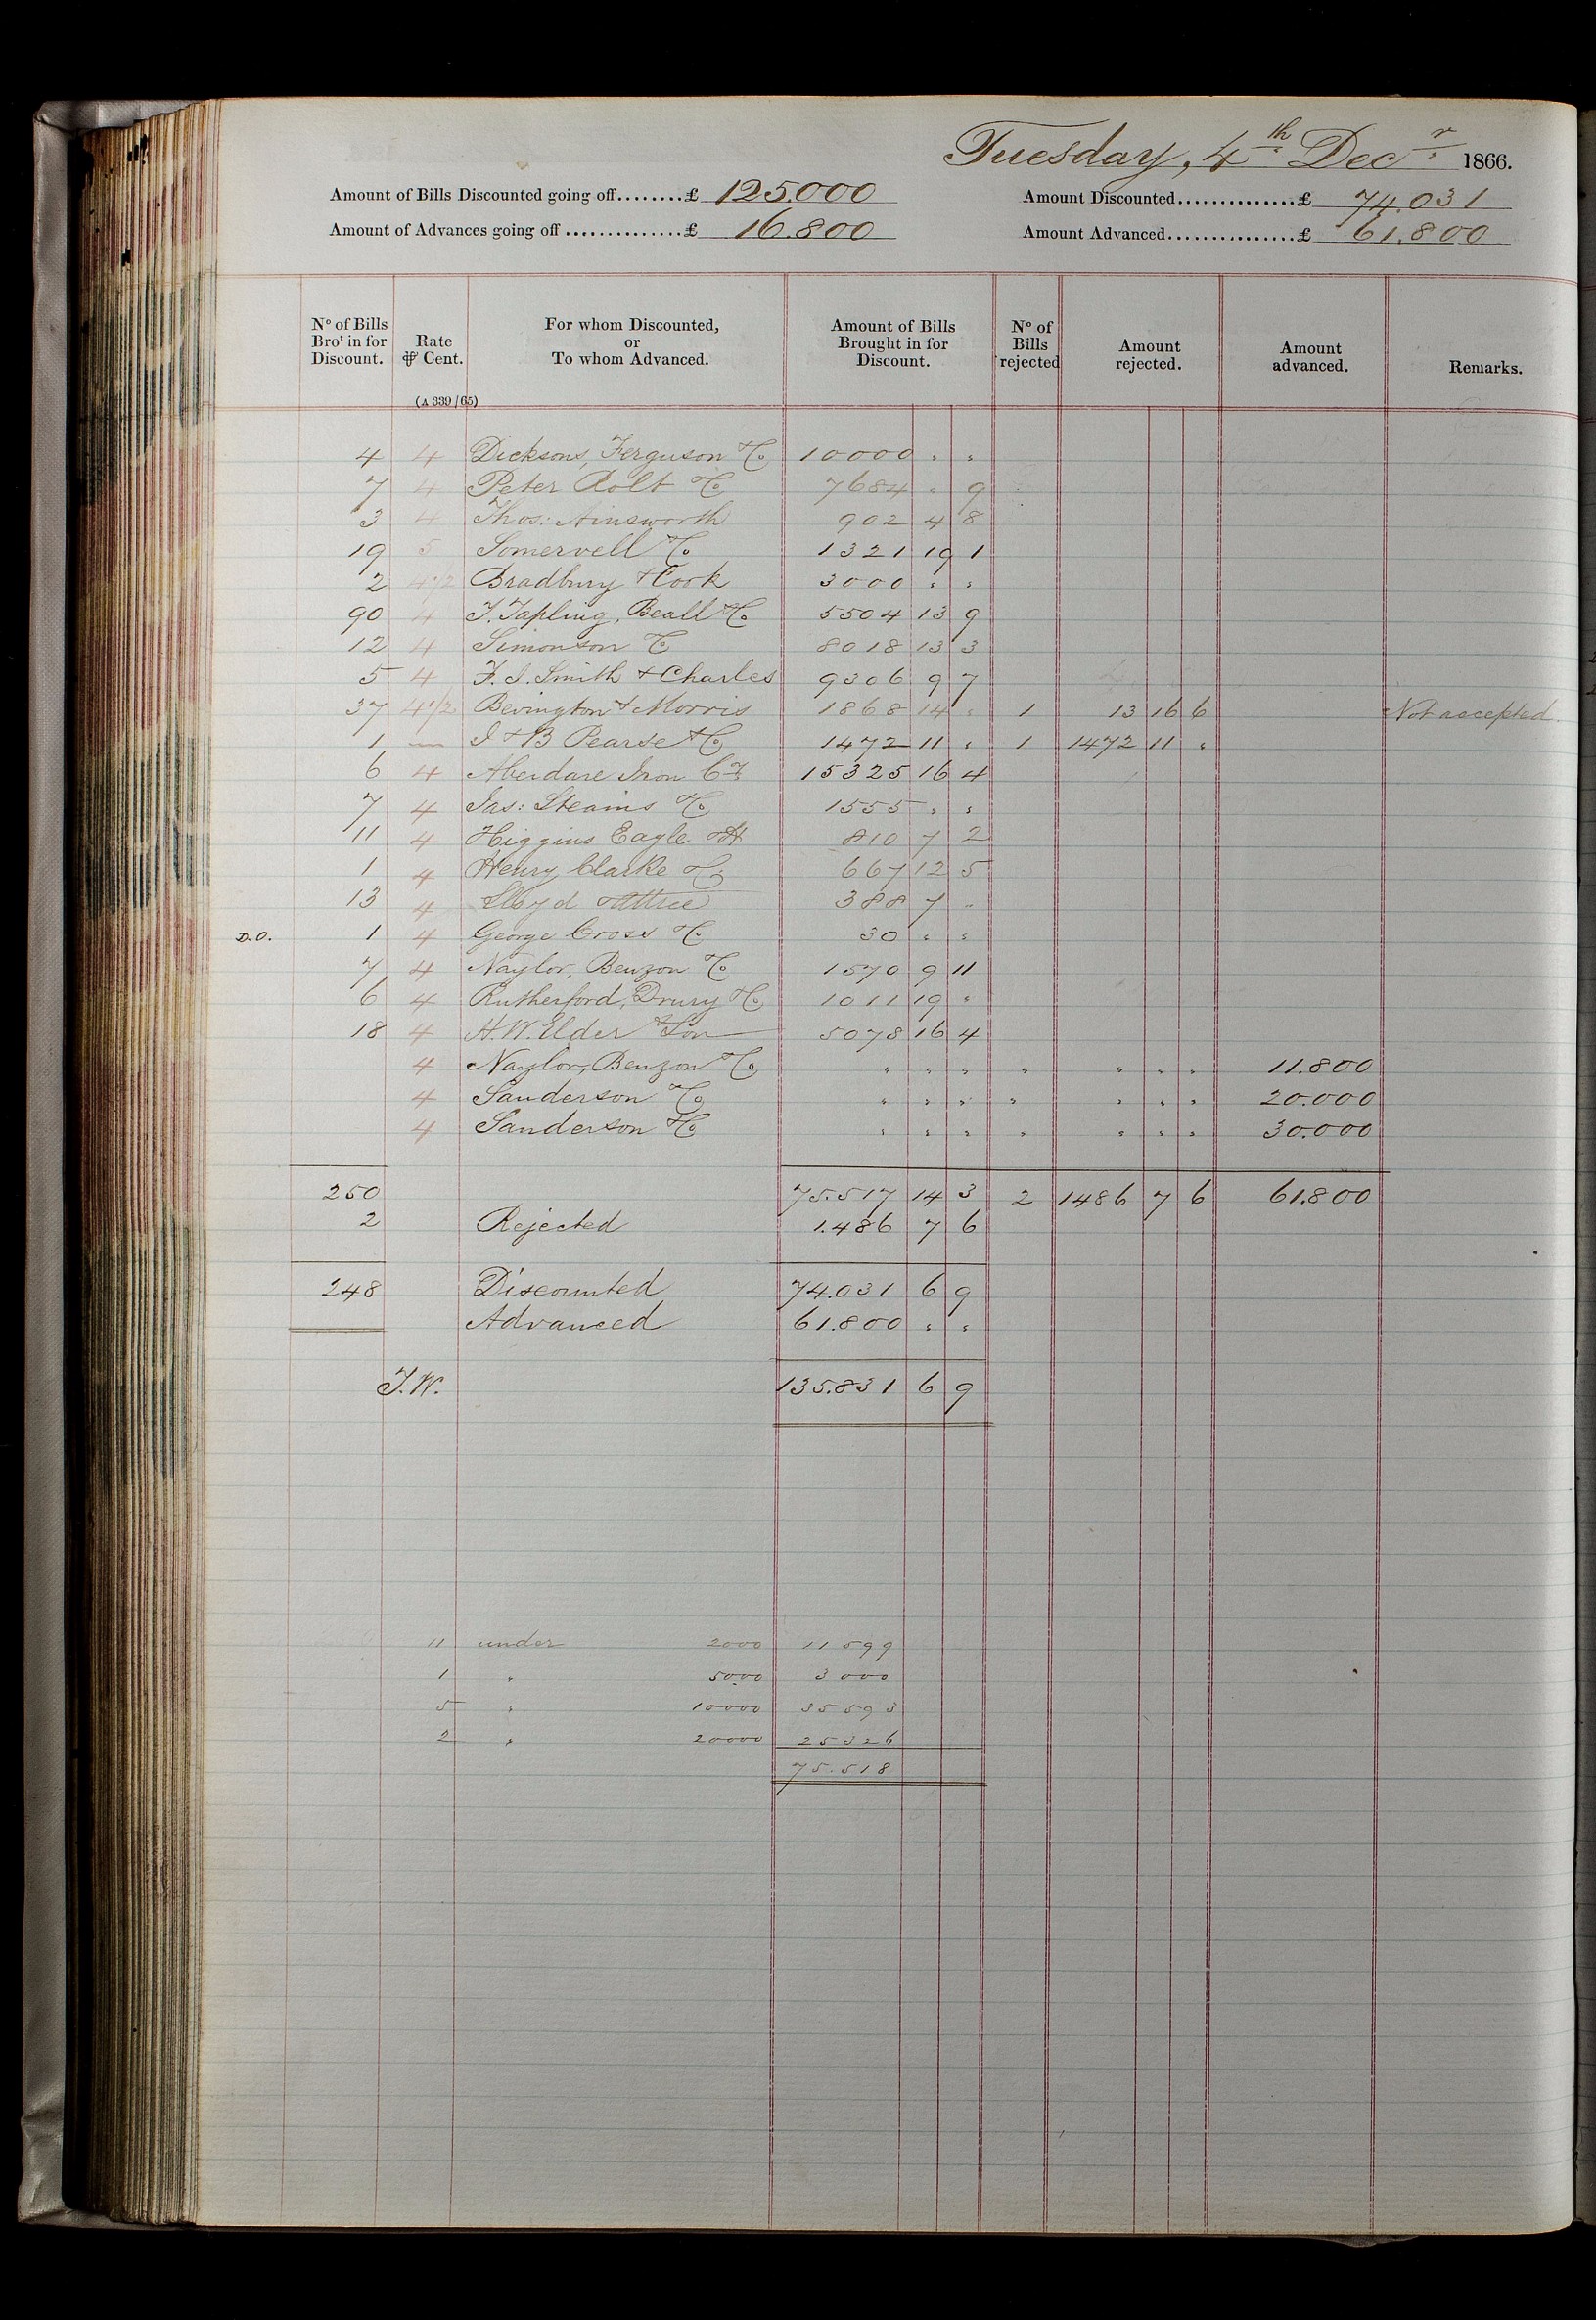 Tuesday, 4th Decr 1866.
Amount of Bills Discounted going off........£ 125.000 Amount Discounted..............£ 74.031
Amount of Advances going off..............£ 16.800 Amount Advanced................£ 61.800
No of Bills Brot in for Discount. Rate ⅌ Cent. (A 339/65) For whom Discounted, or To whom Advanced. Amount of Bills Brought in for Discount. No of Bills rejected Amount rejected. Amount advanced. Remarks.
4 4 Dicksons, Ferguson & Co 10000 " "
7 4 Peter Rolt & Co 7684 " 9
3 4 Thos: Ainsworth 902 4 8
19 5 Somervell & Co 1321 19 1
2 4 1/2 Bradbury & Cook 3000 " "
90 4 T. Tapling, Beall & Co 5504 13 9
12 4 Simonson & Co 8018 13 3
5 4 F. J. Smith & Charles 9306 9 7
37 4 1/2 Bevington & Morris 1868 14 " 1 13 16 6 Not accepted
1 — J & B Pearse & Co 1472 11 " 1 1472 11 "
6 4 Aberdare Iron Cy 15325 16 4
7 4 Jas: Steains & Co 1555 " "
11 4 Higgins Eagle & 810 7 2
1 4 Henry Clarke & Co 667 12 5
13 4 Lloyd & Attree 388 7 "
D.O. 1 4 George Cross & Co 30 " "
7 4 Naylor, Benzon & Co 1570 9 11
6 4 Rutherford, Drury & Co 1011 19 "
18 4 H. W. Elder & Son 5078 16 4
4 Naylor, Benzon & Co " " " " " " " 11.800
4 Sanderson & Co " " " " " " " 20.000
4 Sanderson & Co " " " " " " " 30.000
250 75.517 14 3 2 1486 7 6 61.800
2 Rejected 1.486 7 6
248 Discounted 74.031 6 9
Advanced 61.800 " "
J.W. 135.831 6 9
11 under 2000 11 599
1 " 5000 3 000
5 " 10000 35593
2 " 20000 25326
75.518